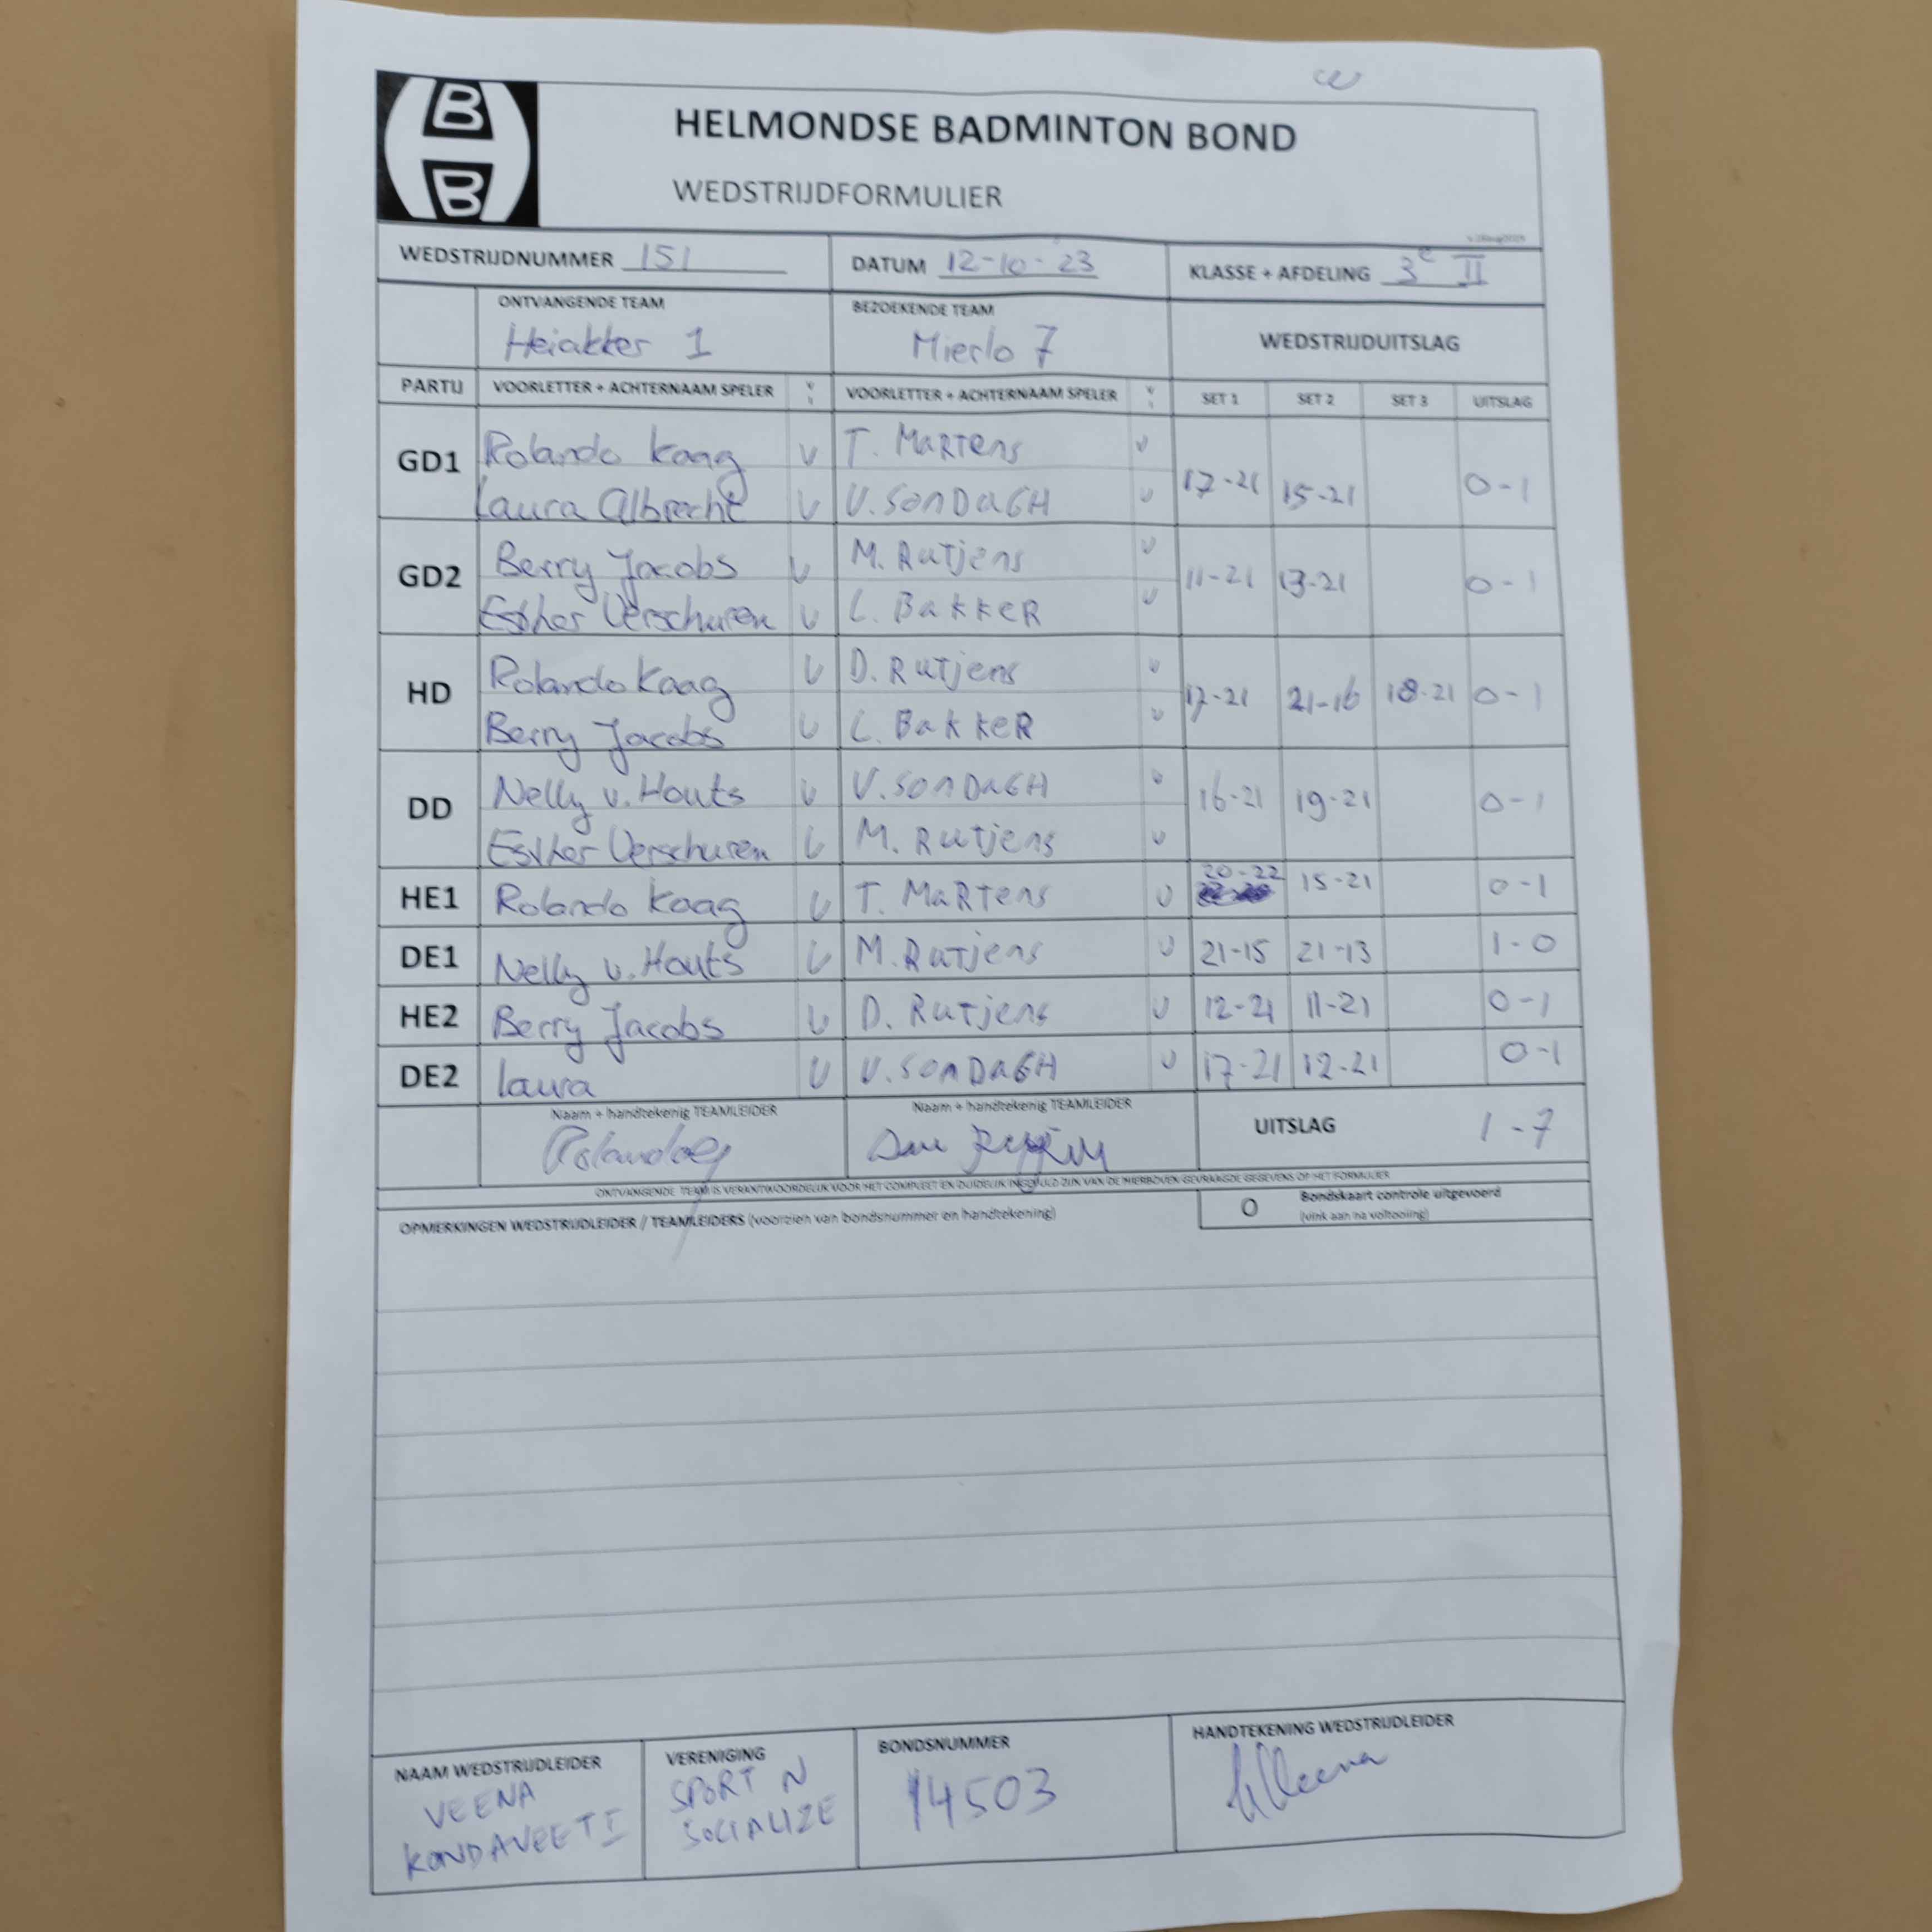 B
B
HELMONDSE BADMINTON BOND
WEDSTRIJDFORMULIER
WEDSTRIJDNUMMER 151 DATUM 12-10-23 KLASSE + AFDELING 3e II
ONTVANGENDE TEAM BEZOEKENDE TEAM WEDSTRIJDUITSLAG
Heiakker 1 Mierlo 7
PARTIJ VOORLETTER + ACHTERNAAM SPELER VOORLETTER + ACHTERNAAM SPELER SET 1 SET 2 SET 3 UITSLAG
GD1 Rolando Kaag V T. Martens V 17-21 15-21 0-1
Laura Albrecht V V. SONDAGH V
GD2 Berry Jacobs V M. Rutjens V 11-21 13-21 0-1
Esther Verschuren V L. Bakker V
HD Rolando Kaag V D. Rutjens V 17-21 21-16 18-21 0-1
Berry Jacobs V L. Bakker V
DD Nelly v. Houts V V. SONDAGH V 16-21 19-21 0-1
Esther Verschuren V M. Rutjens V
HE1 Rolando Kaag V T. Martens V 20-22 15-21 0-1
DE1 Nelly v. Houts V M. Rutjens V 21-15 21-13 1-0
HE2 Berry Jacobs V D. Rutjens V 12-21 11-21 0-1
DE2 Laura V V. SONDAGH V 17-21 12-21 0-1
Naam + handtekenig TEAMLEIDER Naam + handtekenig TEAMLEIDER UITSLAG 1-7
ONTVANGENDE TEAM IS VERANTWOORDELIJK VOOR HET COMPLEET EN DUIDELIJK INGEVULD ZIJN VAN DE HIERBOVEN GEVRAAGDE GEGEVENS OP HET FORMULIER
OPMERKINGEN WEDSTRIJDLEIDER / TEAMLEIDERS (voorzien van bondsnummer en handtekening) O Bondskaart controle uitgevoerd
(vink aan na voltooiing)
NAAM WEDSTRIJDLEIDER VERENIGING BONDSNUMMER HANDTEKENING WEDSTRIJDLEIDER
VEENA SPORT N 14503
KONDAVEETI SOCIALIZE